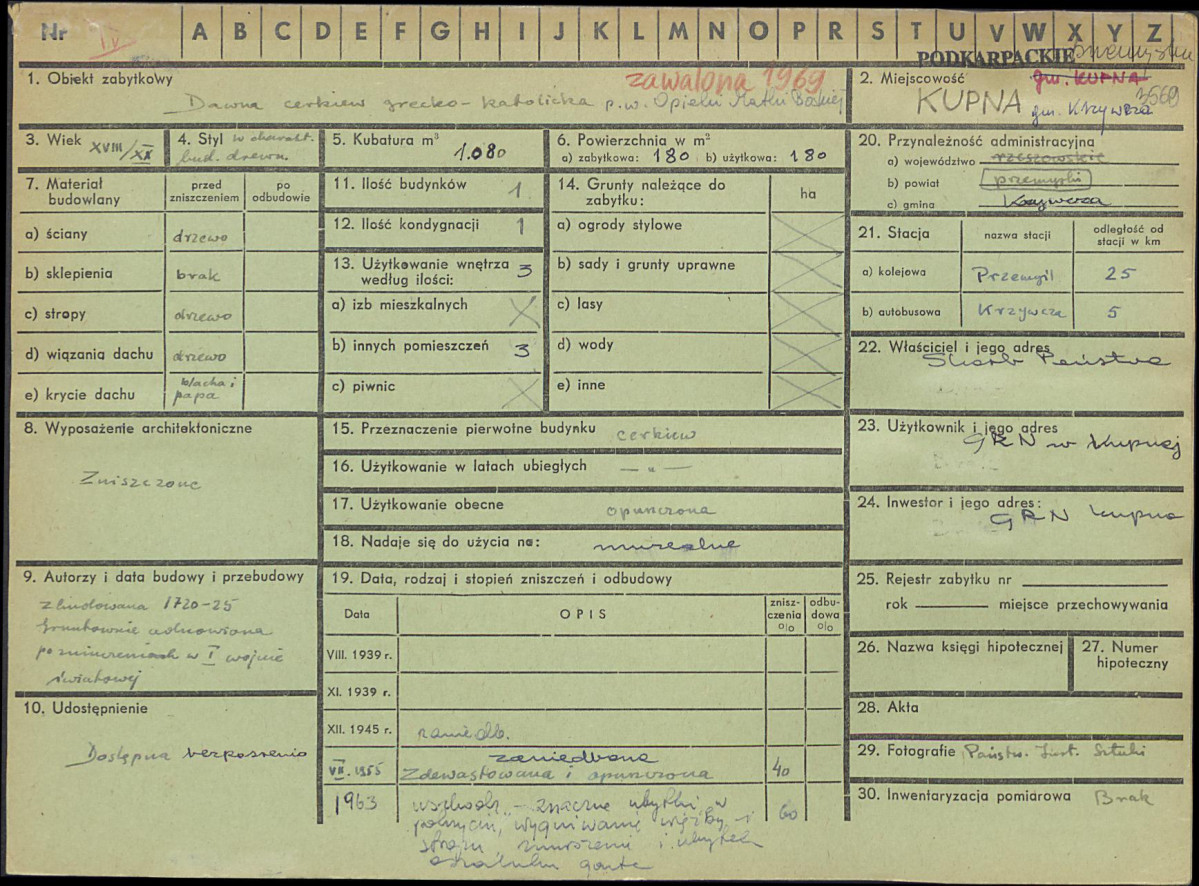 Nr IV A B C D E F G H I J K L M N O P R S T U V W X Y Z
PODKARPACKIE
1. Obiekt zabytkowy
zawalona 1969
Dawna cerkiew grecko-katolicka p.w. Opieki Matki Boskiej
2. Miejscowość
gm. KUPNA
KUPNA gm. Krzywcza
3569
3. Wiek XVIII/XX
4. Styl w charakt.
bud. drewn.
5. Kubatura m³
1.080
6. Powierzchnia w m²
a) zabytkowa: 180 b) użytkowa: 180
20. Przynależność administracyjna
a) województwo rzeszowskie
b) powiat przemyski
c) gmina Krzywcza
7. Materiał budowlany
przed zniszczeniem
po odbudowie
a) ściany drzewo
b) sklepienia brak
c) stropy drzewo
d) wiązania dachu drzewo
e) krycie dachu blacha i papa
11. Ilość budynków 1
12. Ilość kondygnacji 1
13. Użytkowanie wnętrza według ilości: 3
a) izb mieszkalnych
b) innych pomieszczeń 3
c) piwnic
14. Grunty należące do zabytku:
ha
a) ogrody stylowe
b) sady i grunty uprawne
c) lasy
d) wody
e) inne
21. Stacja
nazwa stacji
odległość od stacji w km
a) kolejowa Przemyśl 25
b) autobusowa Krzywcza 5
22. Właściciel i jego adres
Skarb Państwa
8. Wyposażenie architektoniczne
Zniszczone
15. Przeznaczenie pierwotne budynku cerkiew
16. Użytkowanie w latach ubiegłych — " —
17. Użytkowanie obecne opuszczona
18. Nadaje się do użycia na:
23. Użytkownik i jego adres
GRN w Kupnej
24. Inwestor i jego adres:
GRN Kupna
9. Autorzy i data budowy i przebudowy
zbudowana 1720-25
Gruntownie odnowiona
po zniszczeniach w I wojnie
światowej
19. Data, rodzaj i stopień zniszczeń i odbudowy
Data
OPIS
zniszczenia %
odbudowa %
VIII. 1939 r.
XI. 1939 r.
XII. 1945 r. zaniedb.
zaniedbana
VII. 1955 Zdewastowana i opuszczona 40
1963 uszkodz. - znaczne ubytki w 60
pokryciu, wygniwanie więźby i
stropu, zniszczenie i ubytek
szalunku gonta
25. Rejestr zabytku nr
rok miejsce przechowywania
26. Nazwa księgi hipotecznej
27. Numer hipoteczny
10. Udostępnienie
Dostępna bezpośrednio
28. Akta
29. Fotografie Państw. Inst. Sztuki
30. Inwentaryzacja pomiarowa Brak